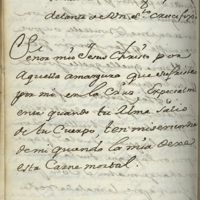 delante de Un S.to Crucifixo
Señor mio Jesus Christo por
Aquella amargura que sufriste
por mi en la Cruz Especialm
ente quando tu Alma Salio
de tu Cuerpo, ten misericordia
de mi quando la mia dexe
esta Carne mortal.